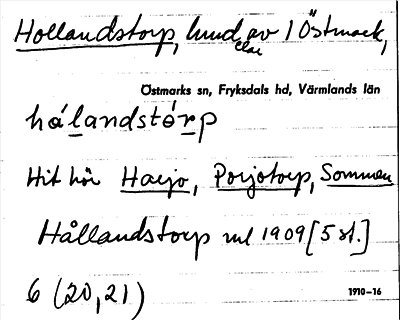 Hollandstorp, hmd av 1 Östmark,
Östmarks sn, Fryksdals hd, Värmlands län
hálandstórp
Hit hör Harjo, Porjotorp, Sommen
Hållandstorp ml 1909 [5 st.]
6 (20,21)
1910-16